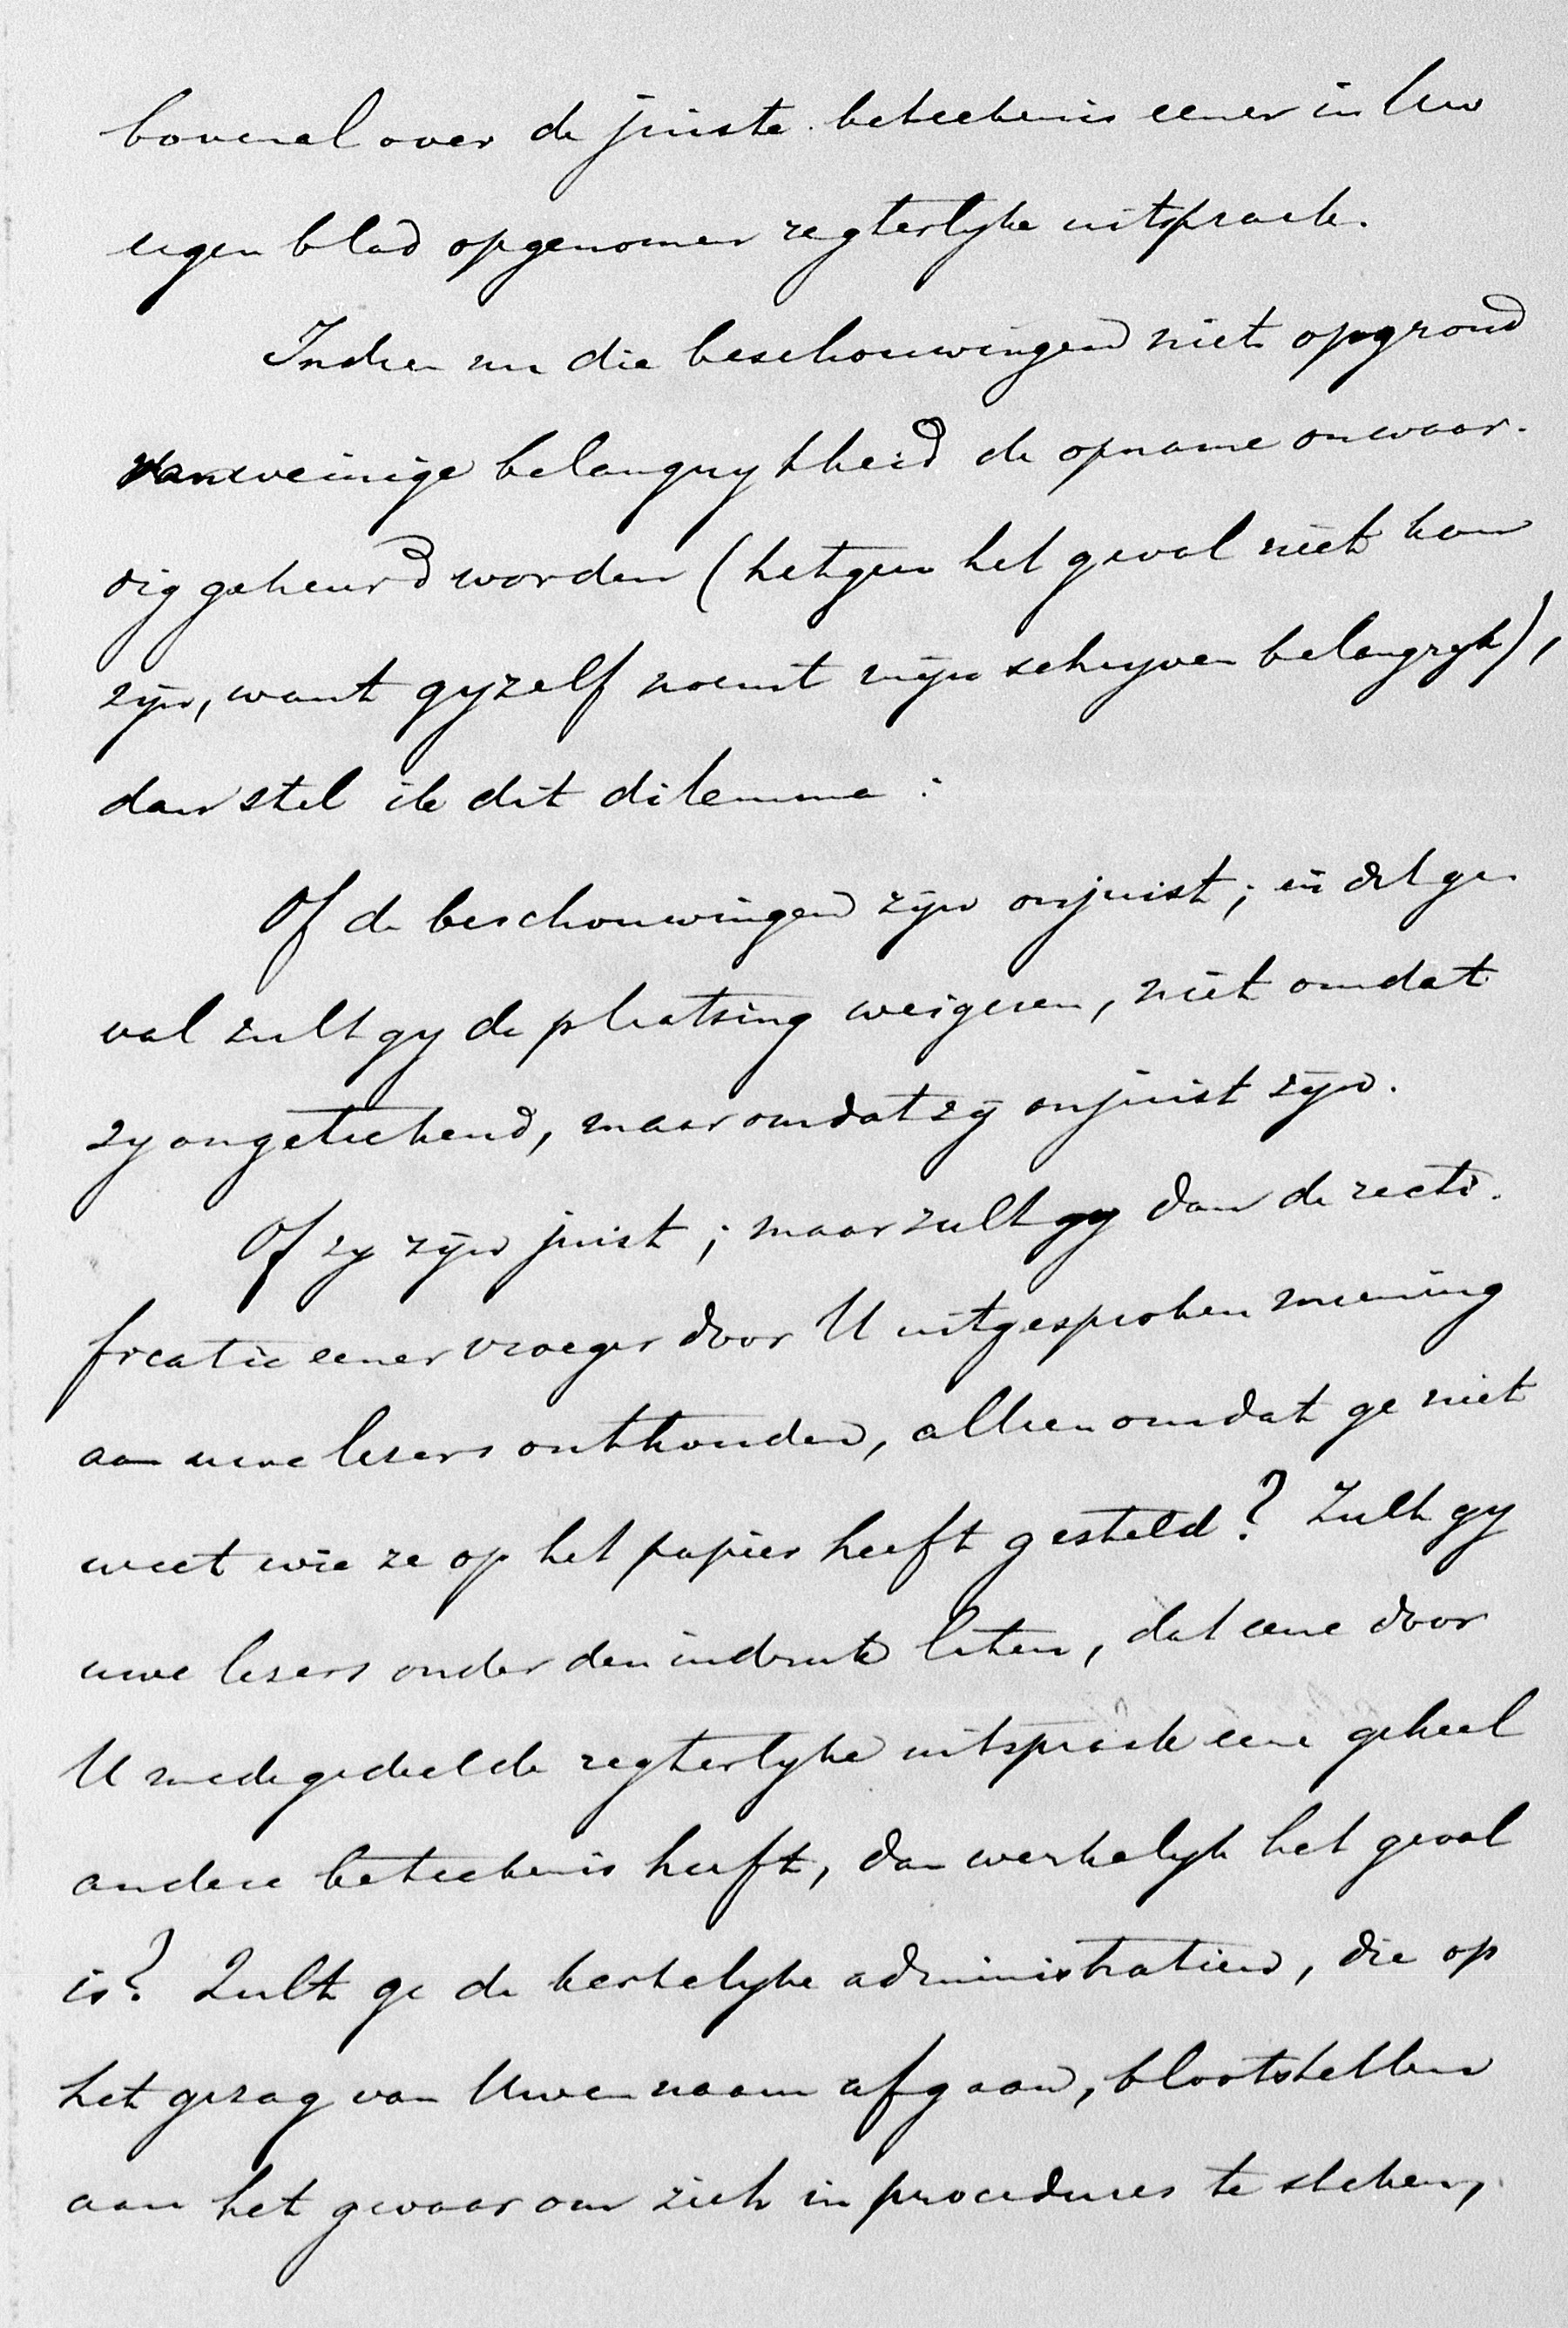 bovenal over de juiste beteekenis eener in Uw
eigen blad opgenomen regterlyke uitspraak.
Indien nu die beschouwingen niet op grond
van weinige belangrykheid de opname onwaar-
dig gekeurd worden (hetgeen het geval niet kan
zijn, want gyzelf noemt mijn schryven belangryk),
dan stel ik dit dilemma:
Of de beschouwingen zijn onjuist; in dit ge-
val zult gy de plaatsing weigeren, niet omdat
zy ongeteekend, maar omdat zij onjuist zijn.
Of zy zijn juist; maar zult gy dan de recti-
ficatie eener vroeger door U uitgesproken meening
aan uwe lezers onthouden, alleen omdat ge niet
weet wie ze op het papier heeft gesteld? Zult gy
uwe lezers onder den indruk laten, dat eene door
U medegedeelde regterlyke uitspraak eene geheel
andere beteekenis heeft, dan werkelyk het geval
is? Zult ge de kerkelyke administratien, die op
het gezag van Uwen naam afgaan, blootstellen
aan het gevaar om zich in procedures te steken,